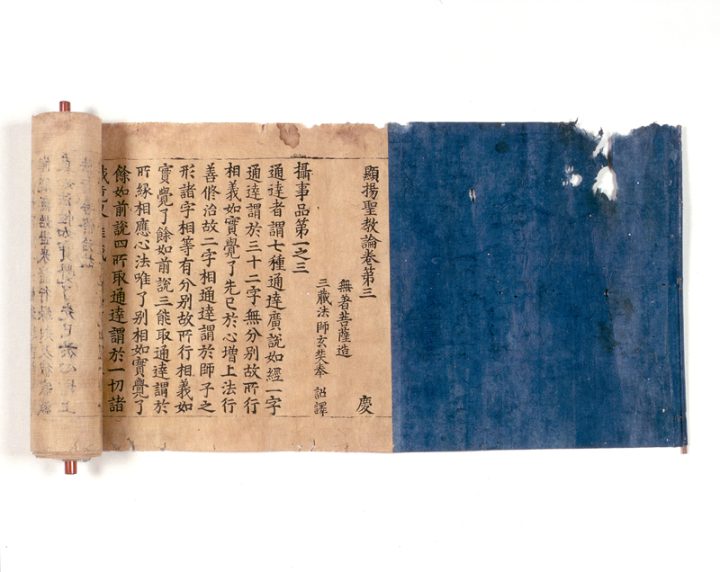 顯揚聖教論卷第三 慶
無著菩薩造
三藏法師玄奘奉 詔譯
攝事品第一之三
通達者謂七種通達廣說如經一字
通達謂於三十二字無分別故所行
相義如實覺了先已於心增上法行
善修治故二字相通達謂於師子之
形諸字相等有分別故所行相義如
實覺了餘如前說三能取通達謂於
所緣相應心法唯了別相如實覺了
餘如前說四所取通達謂於一切諸